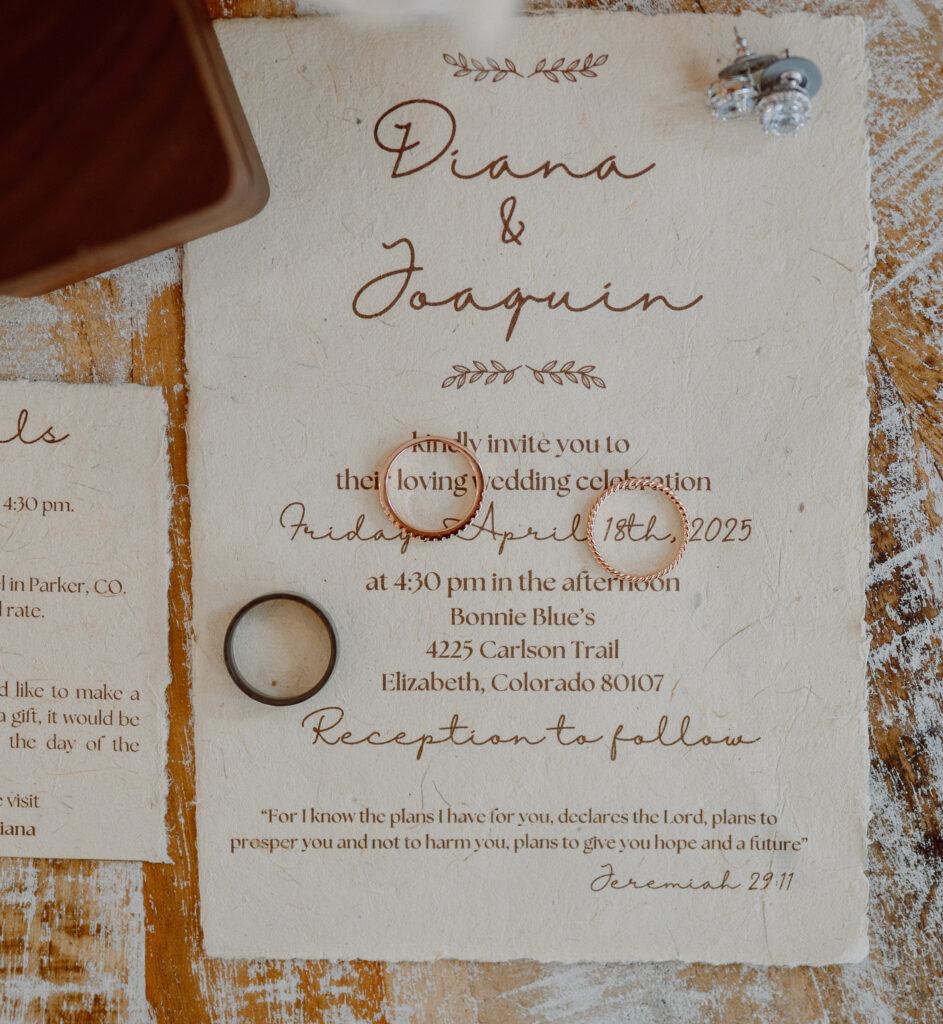 Diana
&
Joaquin
kindly invite you to
their loving wedding celebration
Friday, April 18th, 2025
at 4:30 pm in the afternoon
Bonnie Blue's
4225 Carlson Trail
Elizabeth, Colorado 80107
Reception to follow
“For I know the plans I have for you, declares the Lord, plans to
prosper you and not to harm you, plans to give you hope and a future”
Jeremiah 29:11
4:30 pm.
in Parker, CO.
rate.
like to make a
a gift, it would be
the day of the
visit